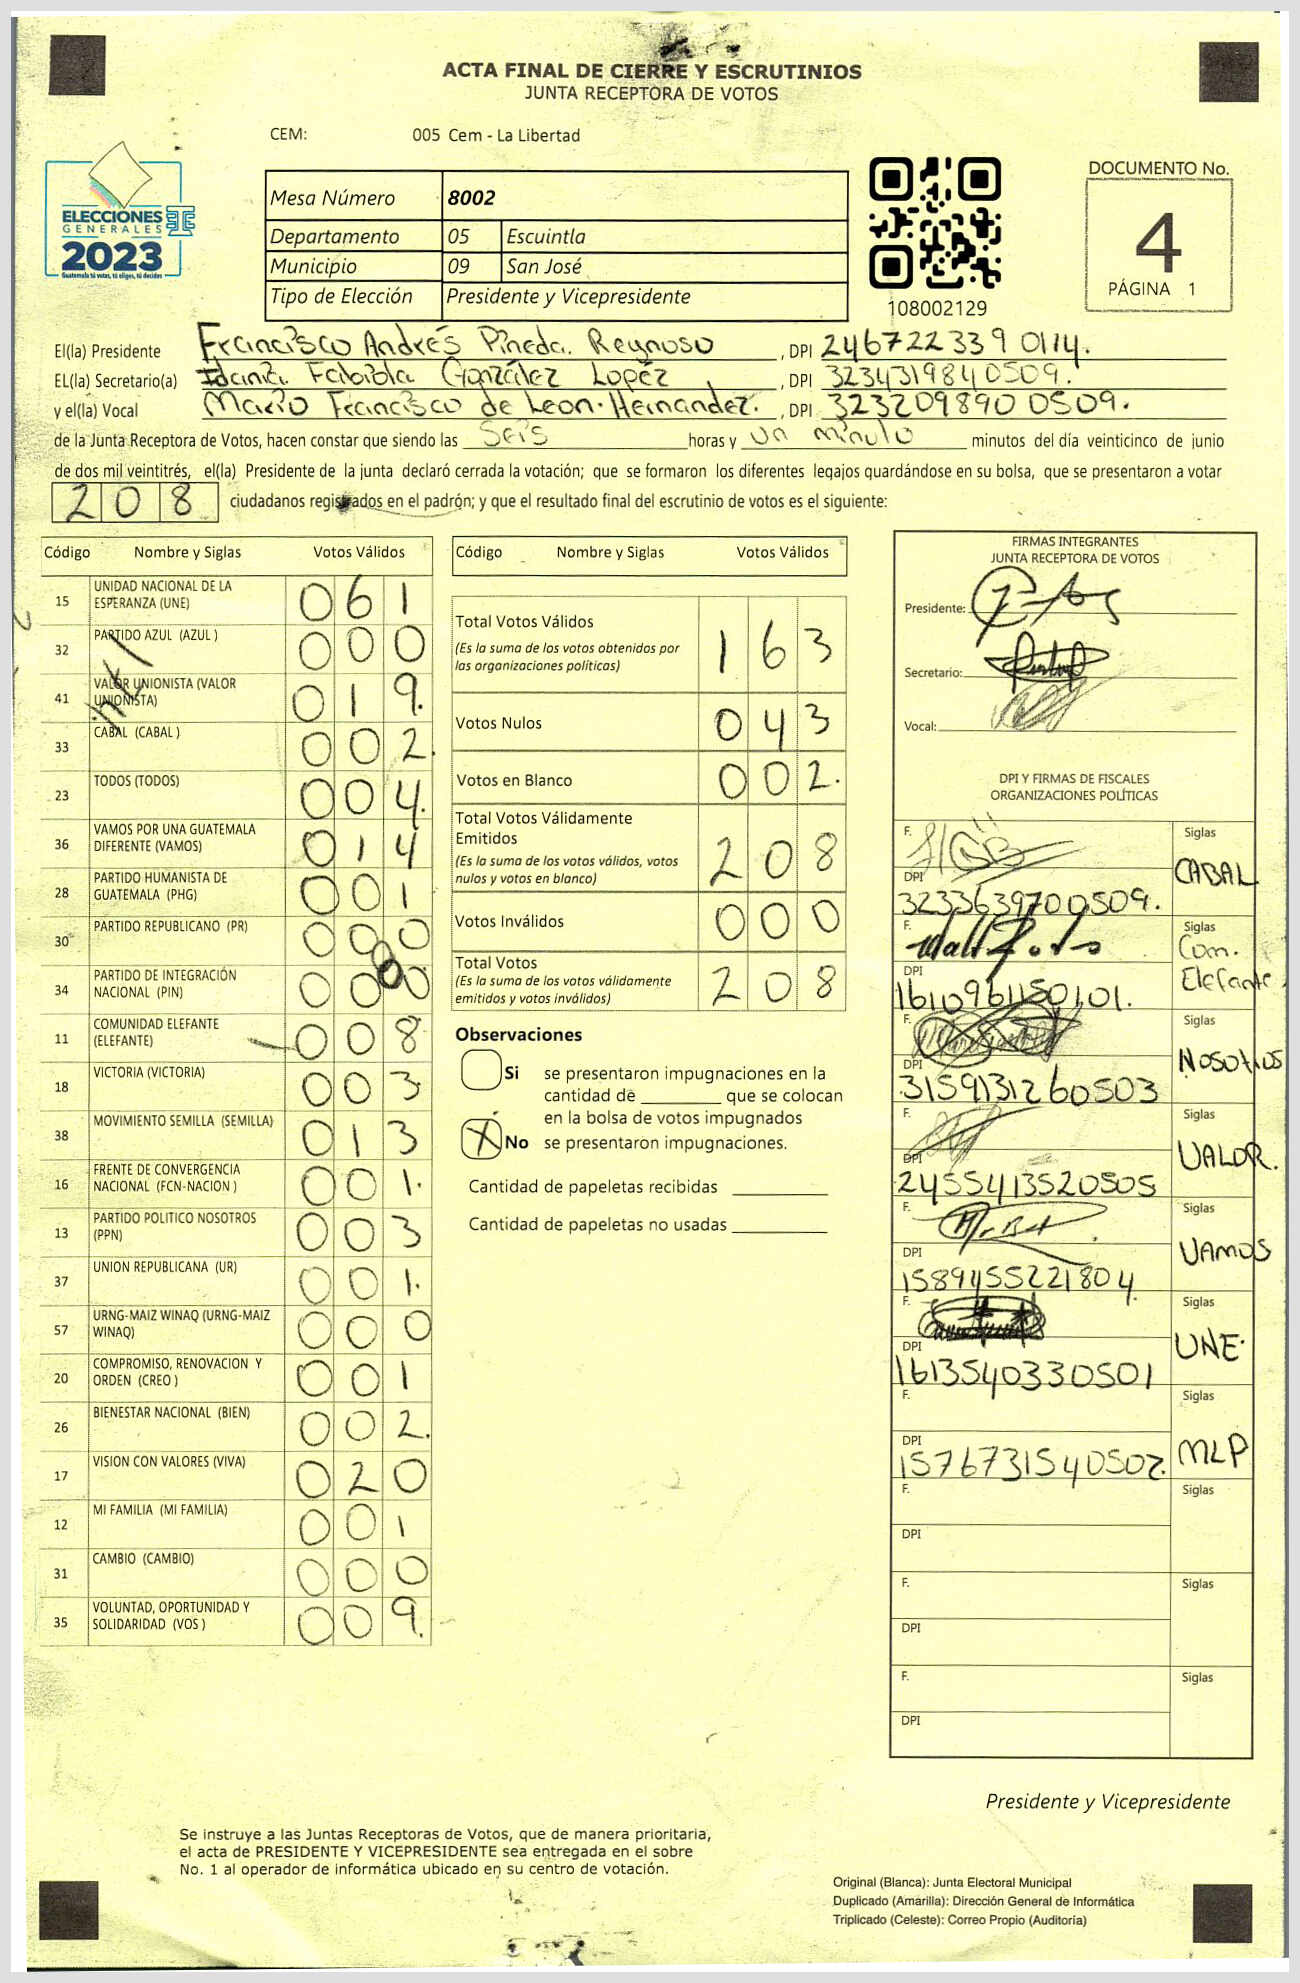 ACTA FINAL DE CIERRE Y ESCRUTINIOS
JUNTA RECEPTORA DE VOTOS
CEM: 005 Cem - La Libertad
ELECCIONES
GENERALES
2023
Guatemala tú votas, tú eliges, tú decides
Mesa Número 8002
Departamento 05 Escuintla
Municipio 09 San José
Tipo de Elección Presidente y Vicepresidente
108002129
DOCUMENTO No.
4
PÁGINA 1
El(la) Presidente Francisco Andrés Pineda Reynoso , DPI 2467223390114.
EL(la) Secretario(a) Idania Fabiola González Lopéz , DPI 3234319840509.
y el(la) Vocal Mario Francisco de Leon Hernandez. , DPI 3232098900509.
de la Junta Receptora de Votos, hacen constar que siendo las seis horas y un minuto minutos del día veinticinco de junio
de dos mil veintitrés, el(la) Presidente de la junta declaró cerrada la votación; que se formaron los diferentes legajos guardándose en su bolsa, que se presentaron a votar
208 ciudadanos registrados en el padrón; y que el resultado final del escrutinio de votos es el siguiente:
Código Nombre y Siglas Votos Válidos
15 UNIDAD NACIONAL DE LA ESPERANZA (UNE) 061
32 PARTIDO AZUL (AZUL ) 000
41 VALOR UNIONISTA (VALOR UNIONISTA) 019.
33 CABAL (CABAL ) 002.
23 TODOS (TODOS) 004.
36 VAMOS POR UNA GUATEMALA DIFERENTE (VAMOS) 014
28 PARTIDO HUMANISTA DE GUATEMALA (PHG) 001
30 PARTIDO REPUBLICANO (PR) 000
34 PARTIDO DE INTEGRACIÓN NACIONAL (PIN) 000
11 COMUNIDAD ELEFANTE (ELEFANTE) 008
18 VICTORIA (VICTORIA) 003
38 MOVIMIENTO SEMILLA (SEMILLA) 013
16 FRENTE DE CONVERGENCIA NACIONAL (FCN-NACION ) 001.
13 PARTIDO POLITICO NOSOTROS (PPN) 003
37 UNION REPUBLICANA (UR) 001.
57 URNG-MAIZ WINAQ (URNG-MAIZ WINAQ) 000
20 COMPROMISO, RENOVACION Y ORDEN (CREO ) 001
26 BIENESTAR NACIONAL (BIEN) 002.
17 VISION CON VALORES (VIVA) 020
12 MI FAMILIA (MI FAMILIA) 001
31 CAMBIO (CAMBIO) 000
35 VOLUNTAD, OPORTUNIDAD Y SOLIDARIDAD (VOS ) 009.
Código Nombre y Siglas Votos Válidos
Total Votos Válidos 163
(Es la suma de los votos obtenidos por las organizaciones políticas)
Votos Nulos 043
Votos en Blanco 002.
Total Votos Válidamente Emitidos 208
(Es la suma de los votos válidos, votos nulos y votos en blanco)
Votos Inválidos 000
Total Votos 208
(Es la suma de los votos válidamente emitidos y votos inválidos)
Observaciones
Si se presentaron impugnaciones en la
cantidad de ________ que se colocan
en la bolsa de votos impugnados
X No se presentaron impugnaciones.
Cantidad de papeletas recibidas ________
Cantidad de papeletas no usadas ________
FIRMAS INTEGRANTES
JUNTA RECEPTORA DE VOTOS
Presidente:
Secretario:
Vocal:
DPI Y FIRMAS DE FISCALES
ORGANIZACIONES POLÍTICAS
F. Siglas CABAL
DPI 3233639700509.
F. Siglas Com. Elefante
DPI 1610961150101.
F. Siglas Nosotros
DPI 3159131260503
F. Siglas VALOR.
DPI 2455413520505
F. Siglas VAMOS
DPI 1589455221804
F. Siglas UNE.
DPI 1613540330501
F. Siglas MLP
DPI 1576731540502.
F. Siglas
DPI
F. Siglas
DPI
F. Siglas
DPI
Presidente y Vicepresidente
Se instruye a las Juntas Receptoras de Votos, que de manera prioritaria,
el acta de PRESIDENTE Y VICEPRESIDENTE sea entregada en el sobre
No. 1 al operador de informática ubicado en su centro de votación.
Original (Blanca): Junta Electoral Municipal
Duplicado (Amarilla): Dirección General de Informática
Triplicado (Celeste): Correo Propio (Auditoría)